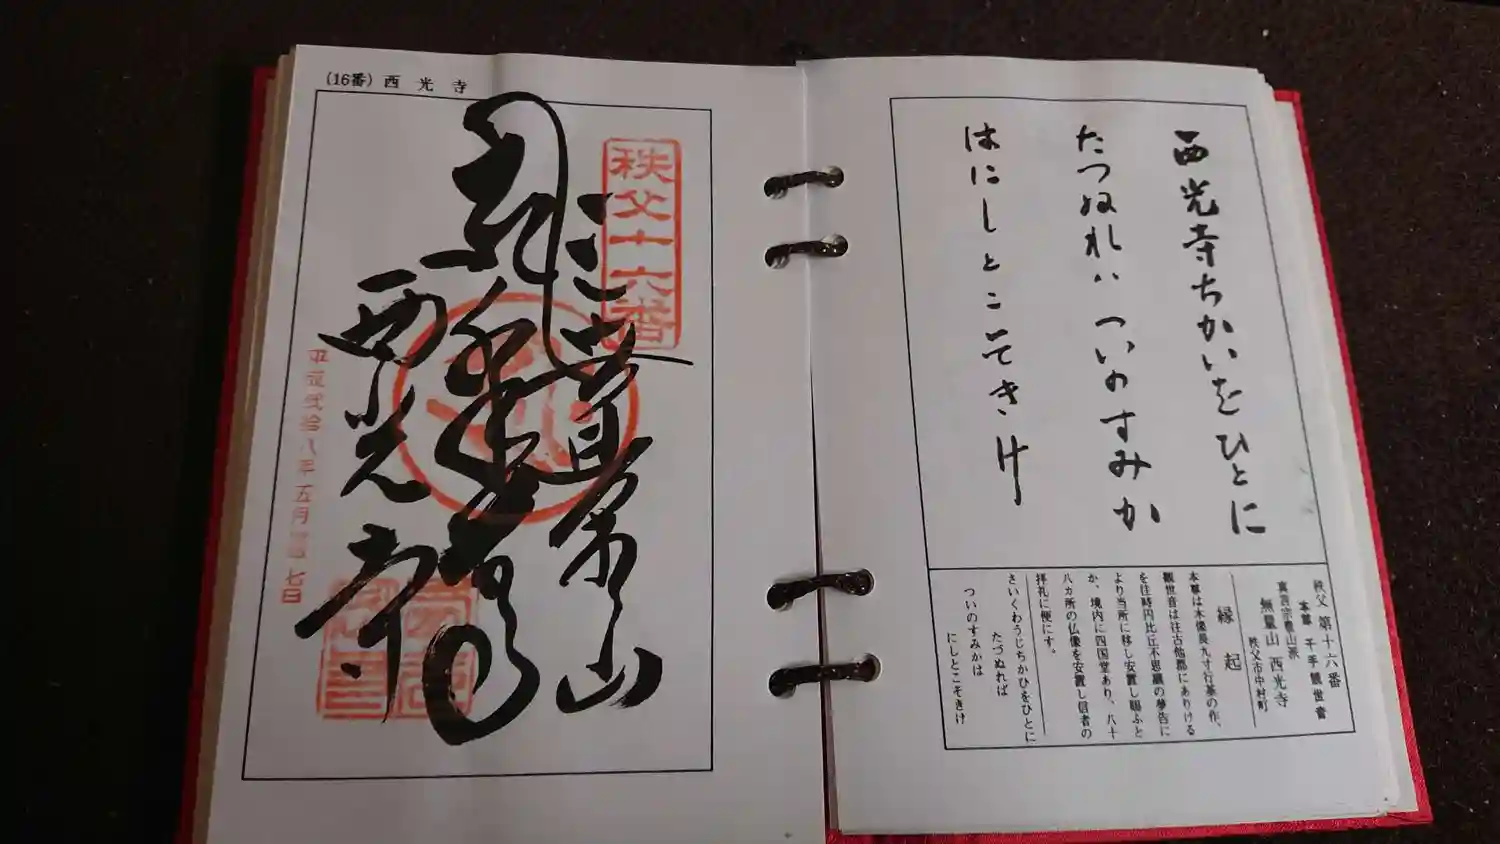 (16番) 西光寺
秩父十六番
無量山
西光寺
平成弐拾八年五月
七日
西光寺ちかいをひとに
たつぬれハついのすみか
はにしとこそきけ
秩父 第十六番
本尊 千手観世音
真言宗豊山派
無量山 西光寺
秩父市中村町
縁起
本尊は木像長九寸行基の作、
観世音は往古他郡にありける
を往時円比丘不思議の夢告に
より当所に移し安置し賜ふと
か、境内に四国堂あり、八十
八カ所の仏像を安置し信者の
拝礼に便にす。
さいくわうじちかひをひとに
たづぬれば
ついのすみかは
にしとこそきけ